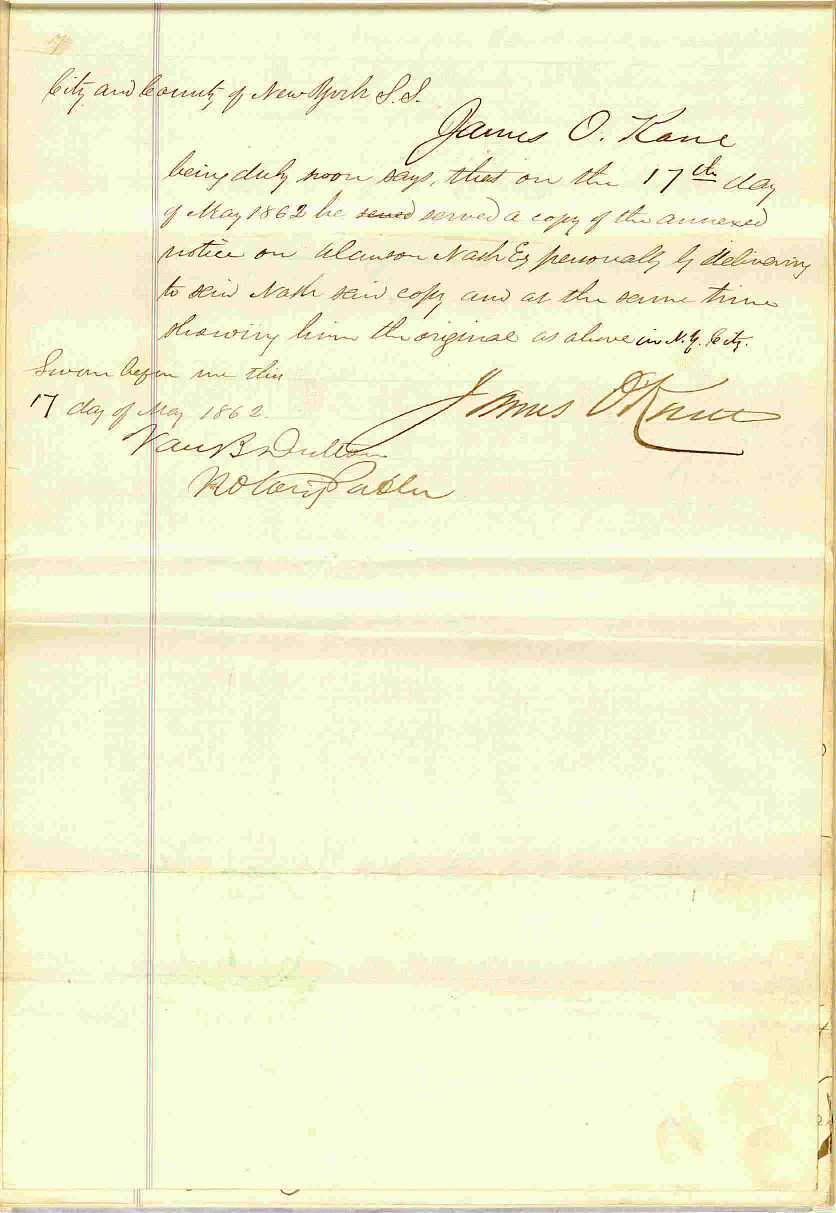 City and County of New York S.S.
James O. Kane
being duly sworn says, that on the 17th day
of May 1862 he served served a copy of the annexed
notice on Alanson Nash Esq personally by delivering
to said Nash said copy and at the same time
showing him the original as above in N.Y. City.
Sworn before me this
17 day of May 1862.
James O'Kane
Notary Public